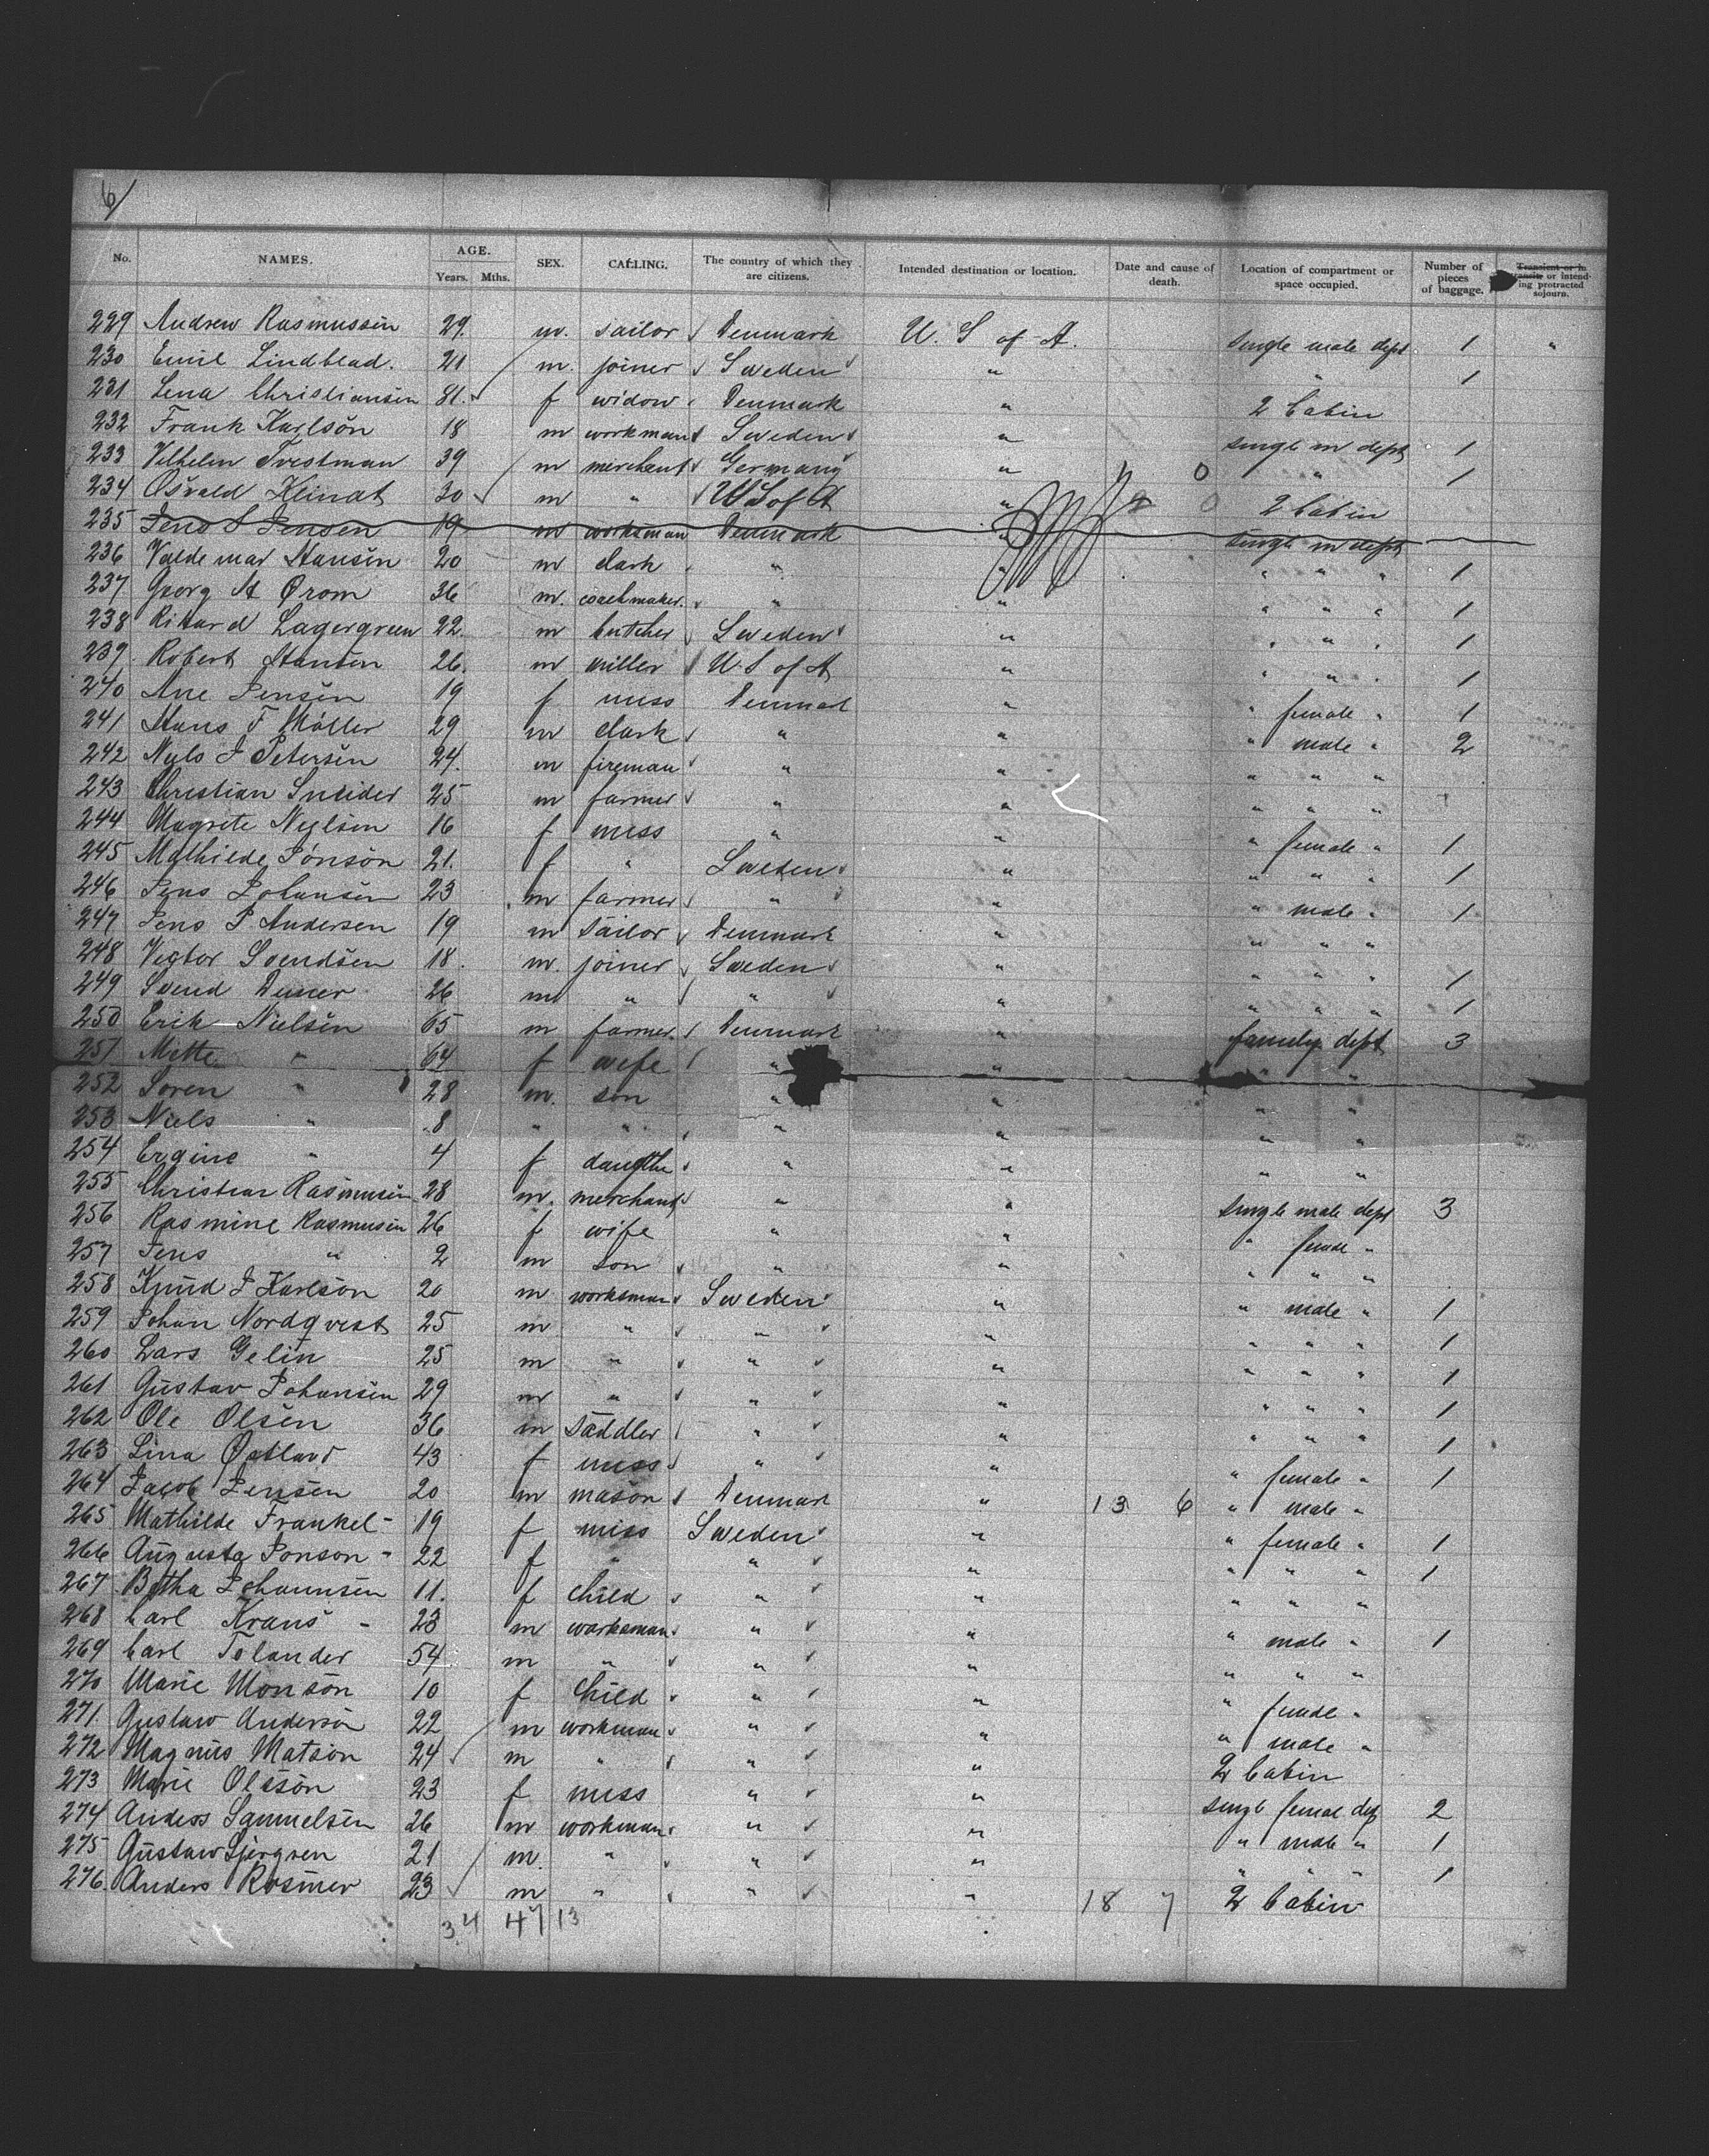 6/
No. NAMES. AGE. Years. Mths. SEX. CALLING. The country of which they are citizens. Intended destination or location. Date and cause of death. Location of compartment or space occupied. Number of pieces of baggage. Transient or in transit or intending protracted sojourn.
229 Andrew Rasmussen 29. m. sailor Denmark U. S of A. single male dept 1 "
230 Emil Lindblad. 21 m. joiner Sweden " " 1
231 Lena Christiansen 81. f widow Denmark " 2 Cabin
232 Frank Karlson 18 m workman Sweden " single m dept 1
233 Vilhelm 39 m merchant Germany " " 1
234 Osvald Keinat 30 m " U S of A " 2 Cabin
235 Jens S Jensen 19 m worksman Denmark " single m dept
236 Valdemar Hansen 20 m clark " " " " " 1
237 Georg A Orom 36 m. coachmaker. " " " " " 1
238 Rikard Lagergreen 22. m butcher Sweden " " " " 1
239. Robert Hansen 26. m miller U. S of A " " " " 1
240 Ane Jensen 19 f miss Denmark " " female " 1
241 Hans F Möller 29 m clark " " " male " 2
242 Nyls J Petersen 24. m fireman " " " " "
243 Christian Sneider 25 m farmer " " " " "
244 Magrete Nielsen 16 f miss " " " female " 1
245 Mathilde Jonson 21. f " Sweden " " " " 1
246 Jens Johansen 23 m farmer " " " male " 1
247 Jens P Andersen 19 m sailor Denmark " " " "
248 Vigtor Svendsen 18. m. joiner Sweden " " " " 1
249 Svend 26 m " " " " " " 1
250 Erik Nielsen 65 m farmer. Denmark " family dept 3
251 Mette " 64 f wife " " " "
252 Soren " 28 m. son " " " "
253 Niels " 8 " " " " " "
254 Ergine " 4 f daugthe " " " "
255 Christian Rasmusen 28 m. merchant " " single male dept 3
256 Rasmine Rasmusen 26 f wife " " " femal "
257 Jens " 2 m son " " " " "
258 Knud J Karlson 20 m worksman Sweden " " male " 1
259 Johan Nordqvest 25 m " " " " " " 1
260 Lars Gelin 25 m " " " " " " 1
261 Gustav Johansen 29 m " " " " " " 1
262 Ole Olsen 36 m saddler " " " " " 1
263 Lina Ostlard 43 f miss " " " female " 1
264 Jacob Jensen 20 m mason Denmark " 13 6 " male "
265 Mathilde Frankel - 19 f miss Sweden " " female " 1
266 Augusta Jonson - 22 f " " " " " " 1
267. Betha Johannsen 11. f Child " " " " "
268 Carl Kraus - 23 m worksman " " " male " 1
269 Carl Tolander 54 m " " " " " "
270 Marie Monson 10 f Child " " " femal "
271. Gustaw Anderson 22 m workman " " " male "
272 Magnus Matson 24 m " " " 2 Cabin
273 Marie Olsson 23 f miss " " singl femal dep 2
274 Anders Samuelsen 26 m workman " " " male " 1
275 Gustaw Sjergren 21 m. " " " " " " 1
276. Anders Rosmer 23 m " " " 18 7 2 Cabin
34 47 13